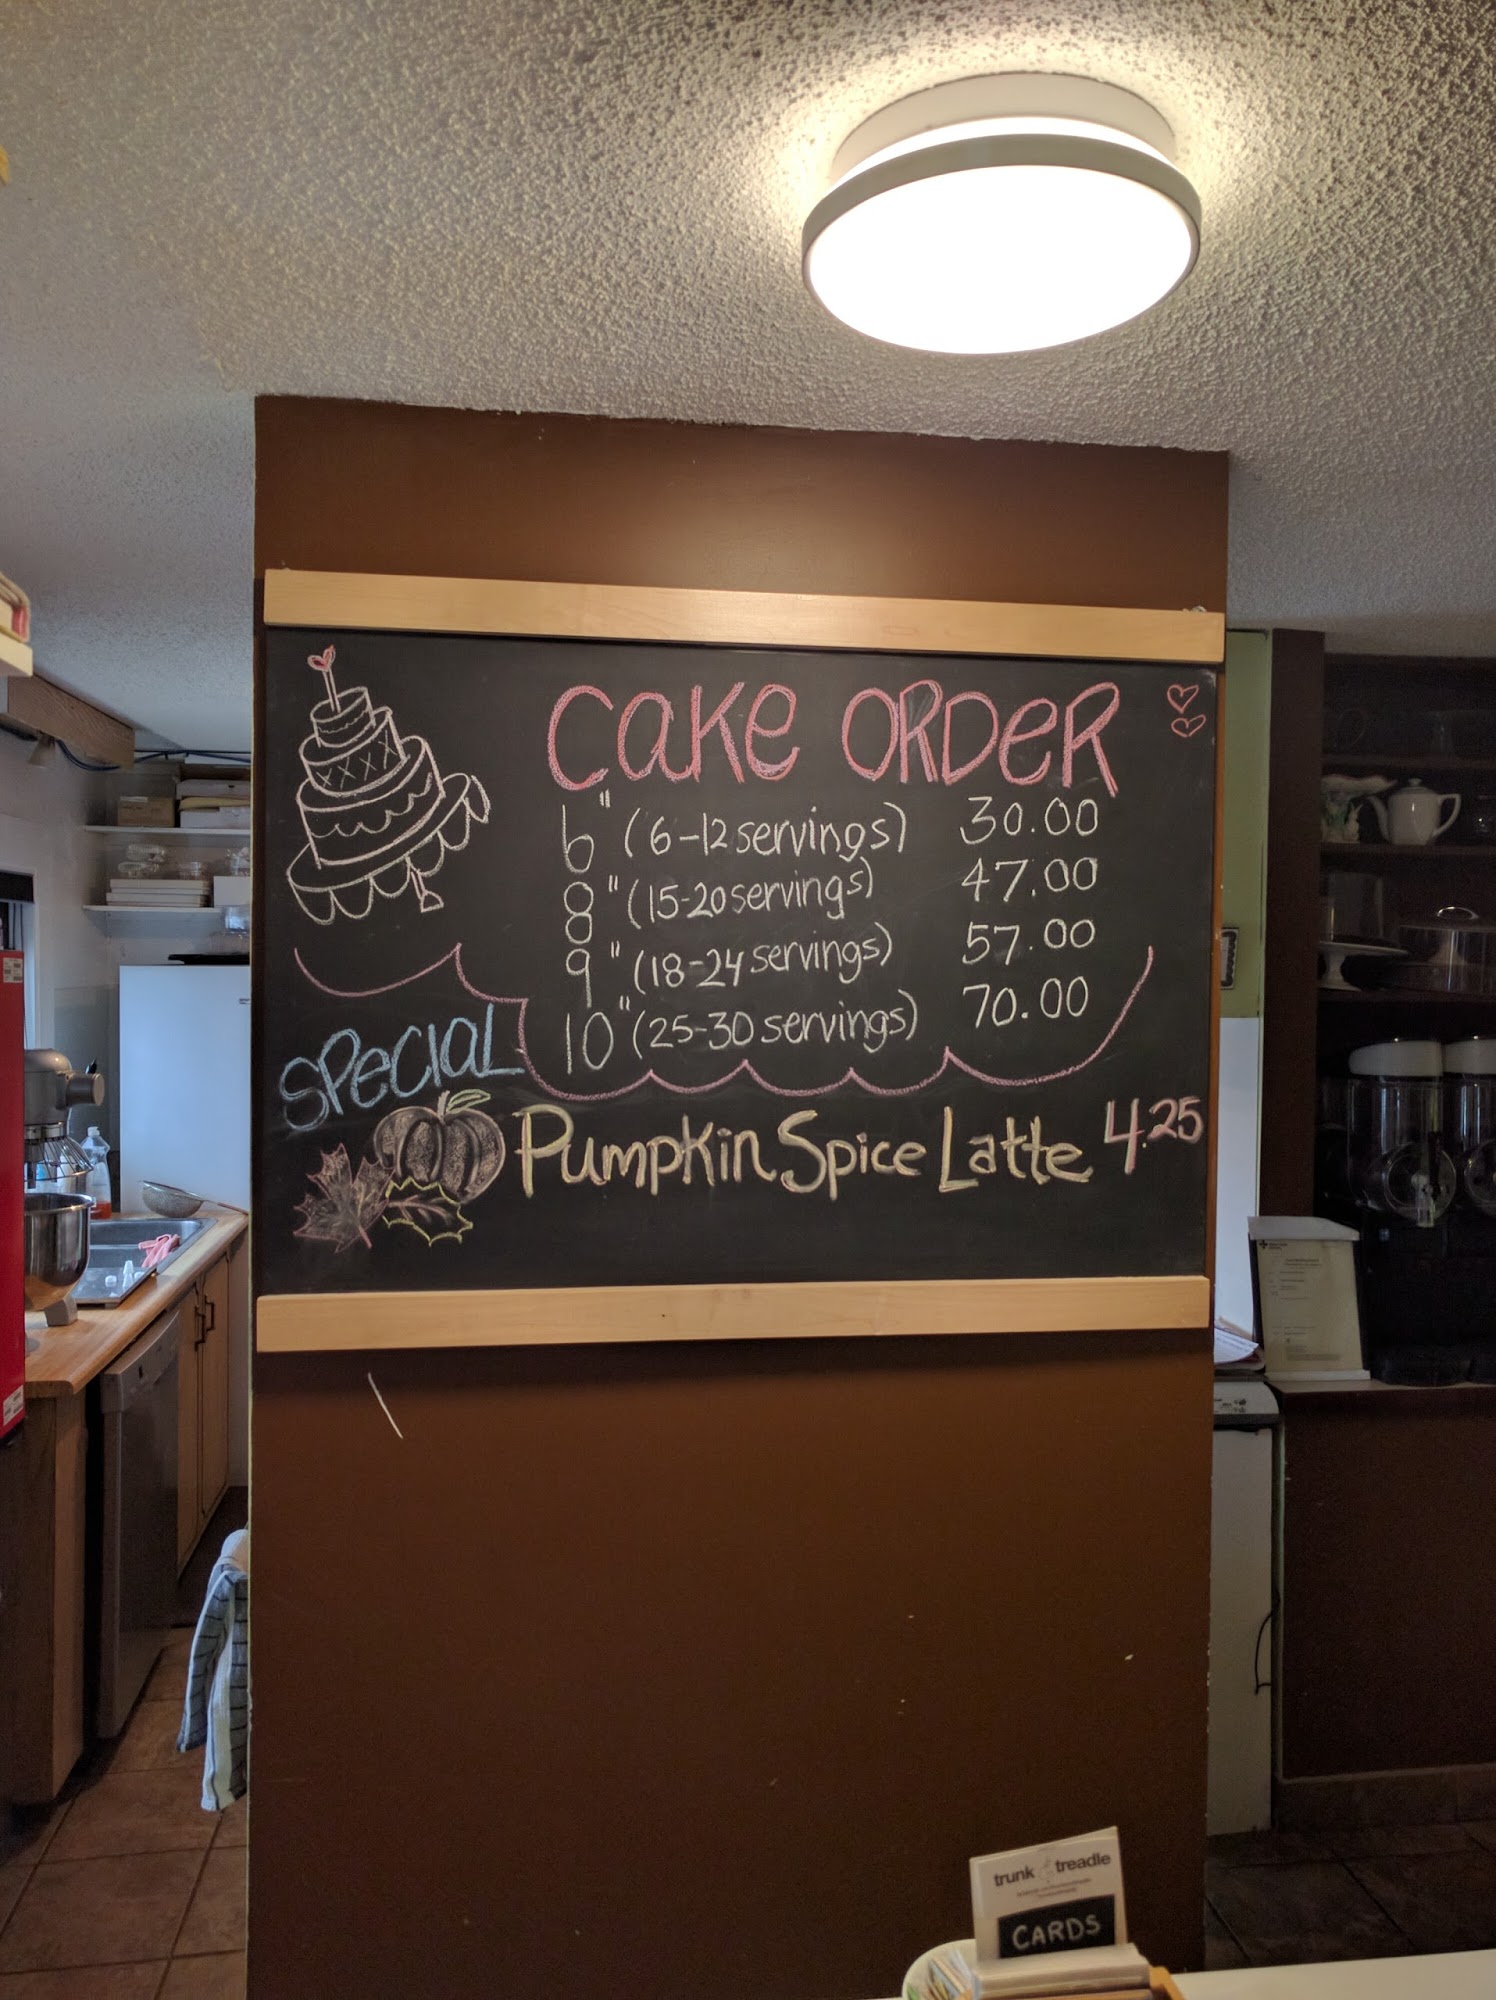 Cake Order
6" (6-12 servings) 30.00
8" (15-20 servings) 47.00
9" (18-24 servings) 57.00
10" (25-30 servings) 70.00
Special
Pumpkin Spice Latte 4.25
trunk treadle
CARDS